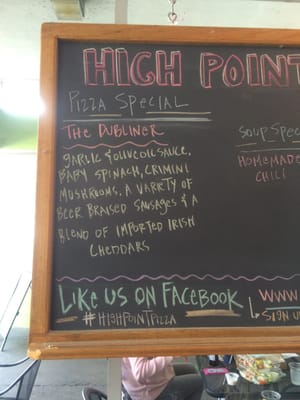 HIGH POINT
PIZZA SPECIAL
THE DUBLINER
GARLIC & OLIVE OIL SAUCE,
BABY SPINACH, CRIMINI
MUSHROOMS, A VARIETY OF
BEER BRAISED SAUSAGES & A
BLEND OF IMPORTED IRISH
CHEDDARS
SOUP SPEC
HOMEMADE
CHILI
LIKE US ON FACEBOOK
#HIGHPOINTPIZZA
WWW
SIGN U